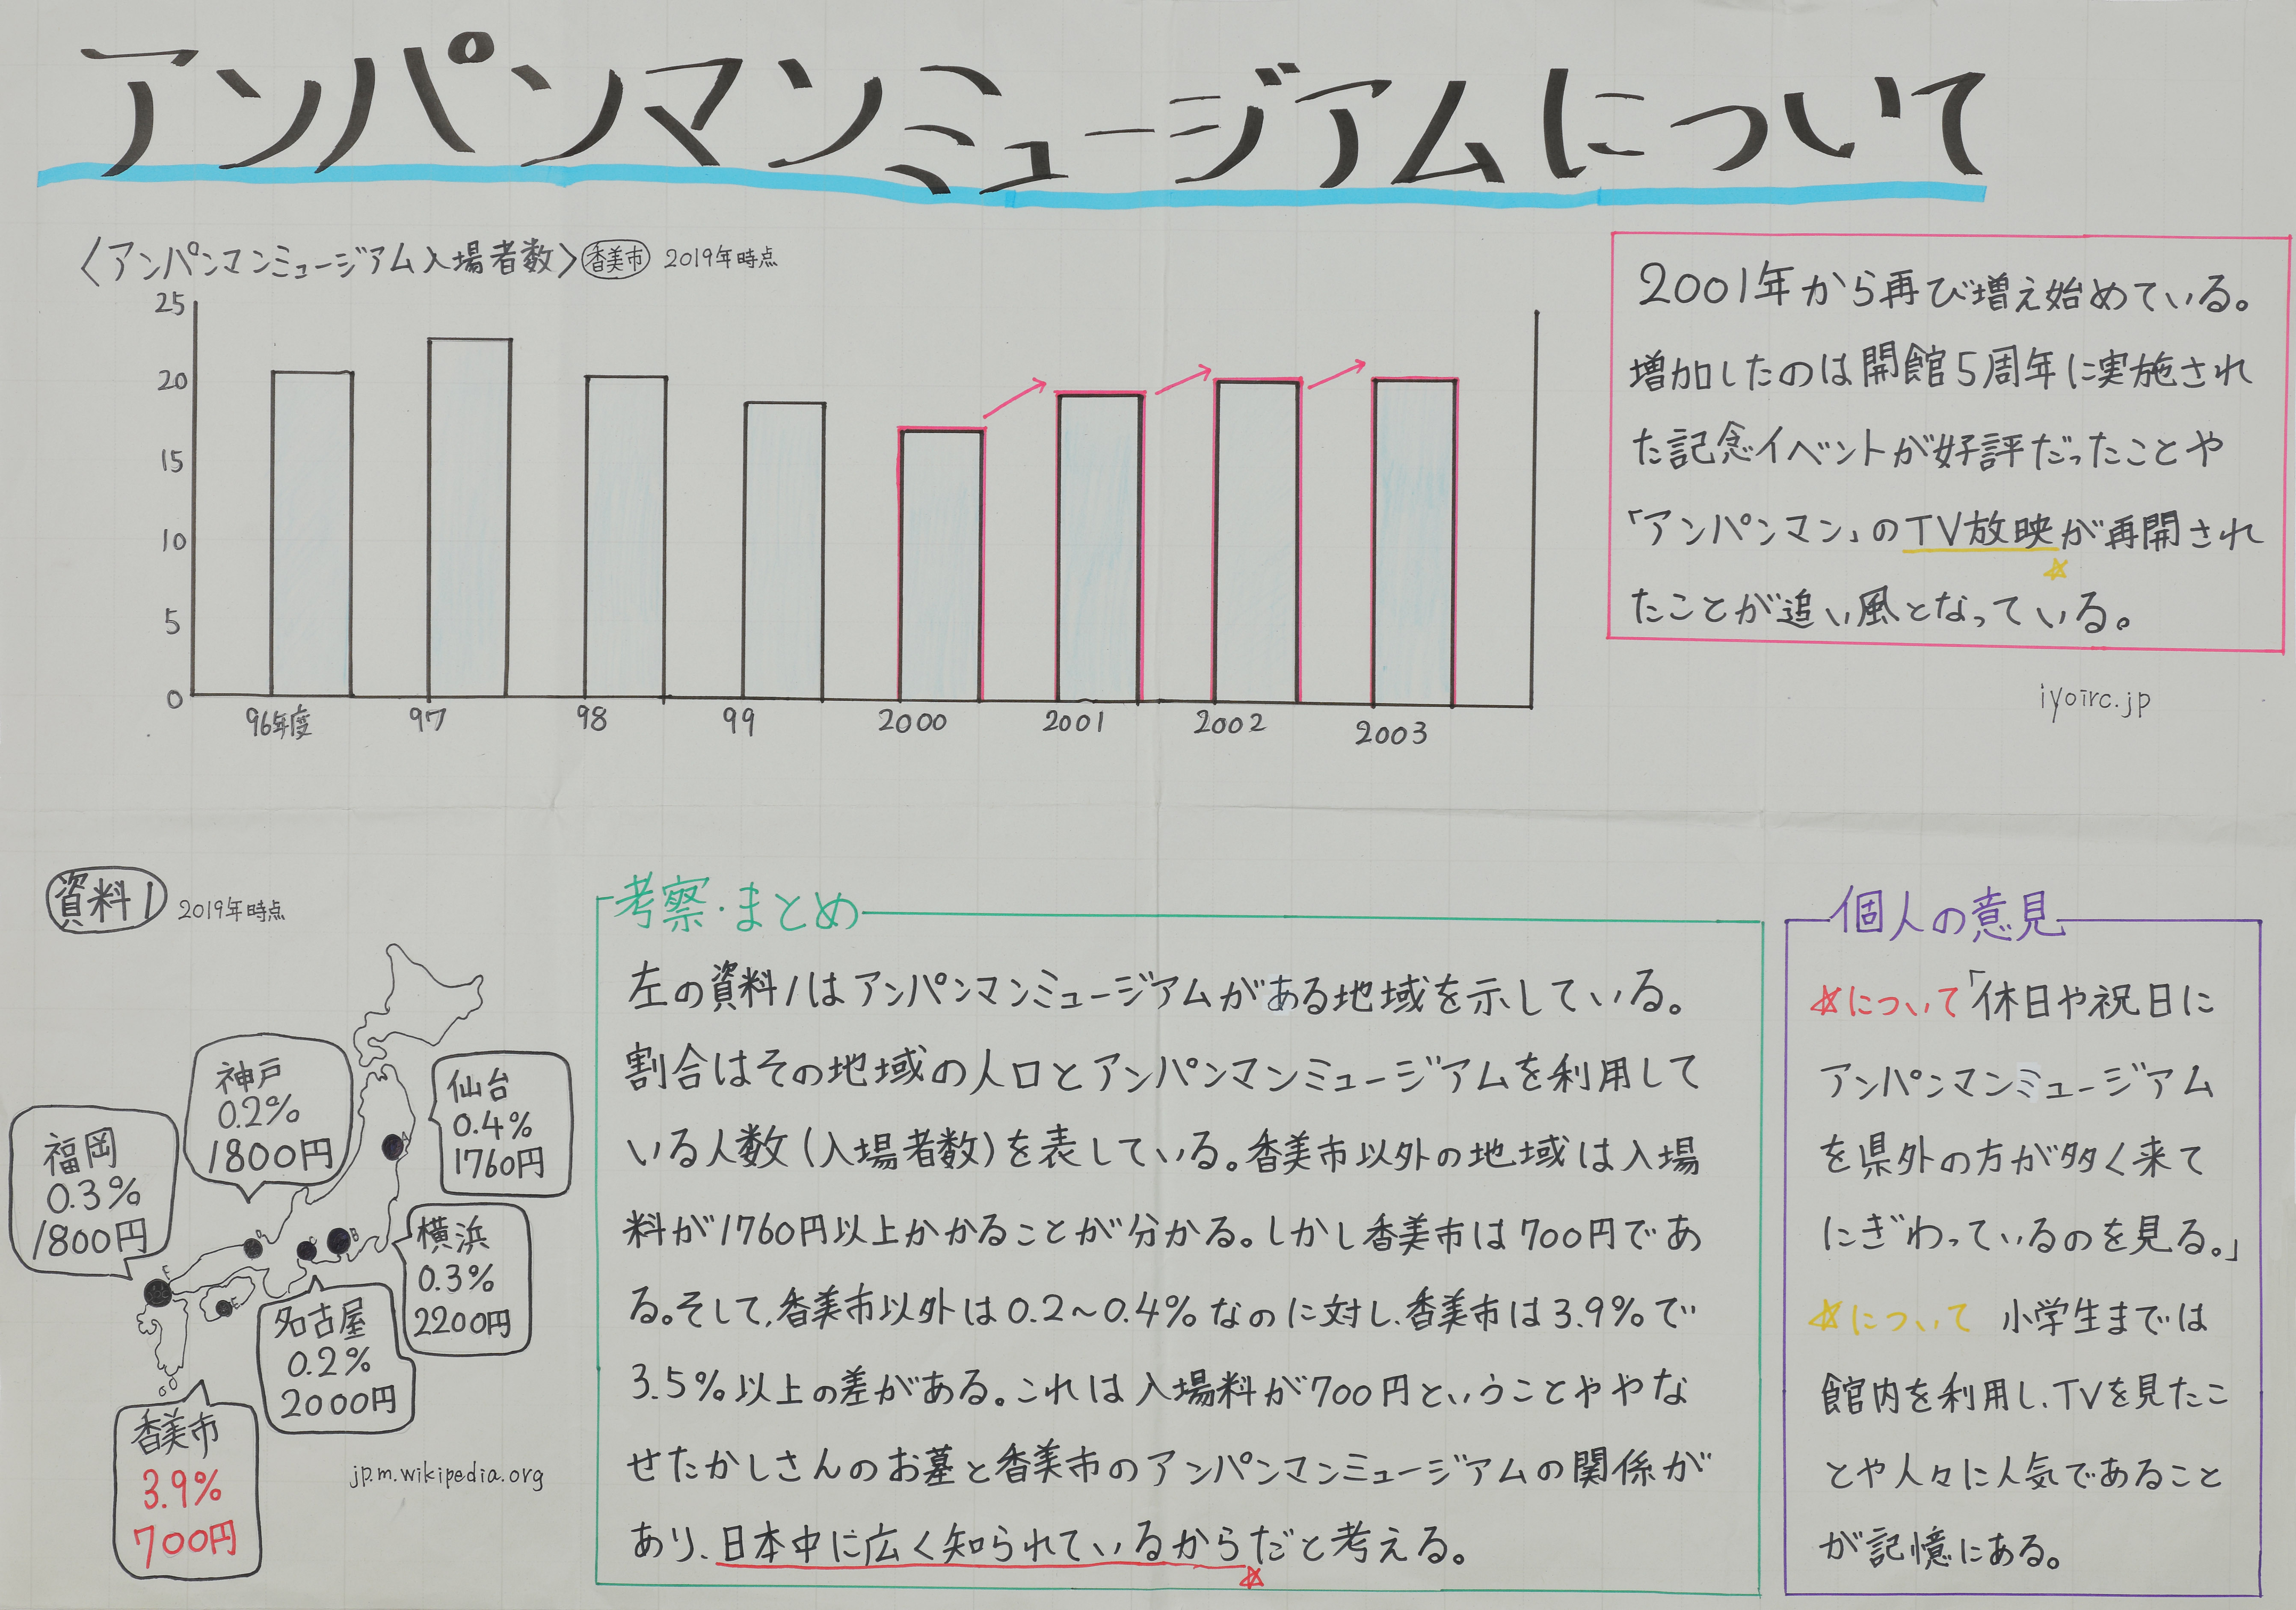 アンパンマンミュージアムについて
〈アンパンマンミュージアム入場者数〉香美市 2019年時点
25
20
15
10
5
0
96年度 97 98 99 2000 2001 2002 2003
2001年から再び増え始めている。
増加したのは開館5周年に実施され
た記念イベントが好評だったことや
「アンパンマン」のTV放映が再開され
☆
たことが追い風となっている。
iyoirc.jp
資料1 2019年時点
神戸
0.2%
1800円
仙台
0.4%
1760円
福岡
0.3%
1800円
横浜
0.3%
2200円
名古屋
0.2%
2000円
香美市
3.9%
700円
jp.m.wikipedia.org
考察・まとめ
左の資料1はアンパンマンミュージアムがある地域を示している。
割合はその地域の人口とアンパンマンミュージアムを利用して
いる人数(入場者数)を表している。香美市以外の地域は入場
料が1760円以上かかることが分かる。しかし香美市は700円であ
る。そして、香美市以外は0.2〜0.4%なのに対し、香美市は3.9%で
3.5%以上の差がある。これは入場料が700円ということややな
せたかしさんのお墓と香美市のアンパンマンミュージアムの関係が
あり、日本中に広く知られているからだと考える。
☆
個人の意見
☆について「休日や祝日に
アンパンマンミュージアム
を県外の方が多く来て
にぎわっているのを見る。」
☆について 小学生までは
館内を利用し、TVを見たこ
とや人々に人気であること
が記憶にある。